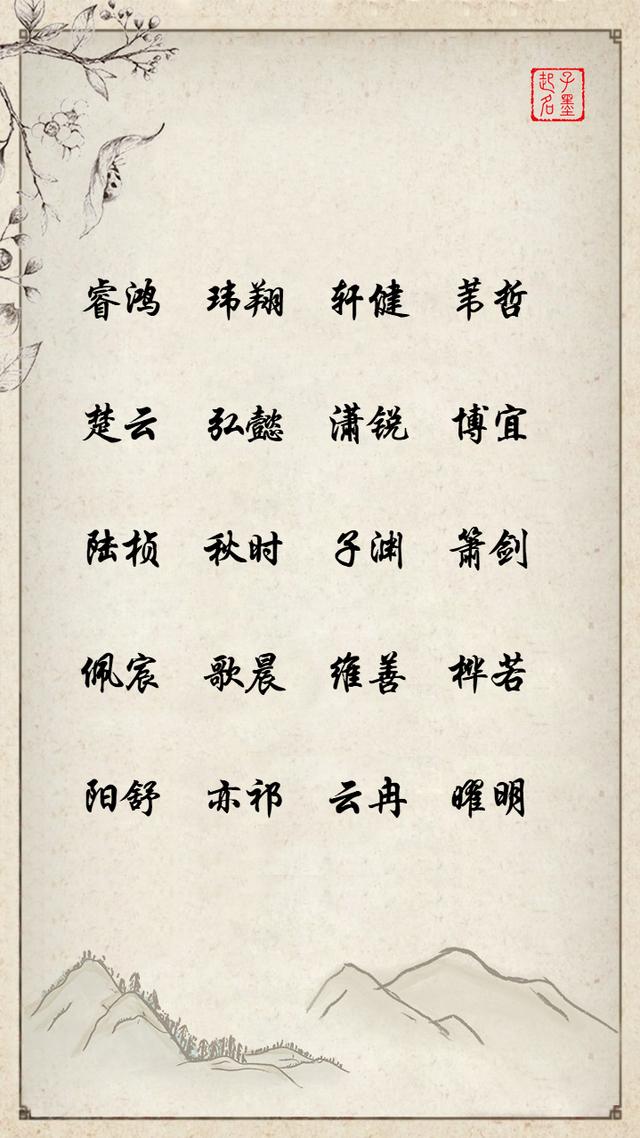 子墨
起名
睿鸿 玮翔 轩健 苇哲
楚云 弘懿 潇锐 博宜
陆桢 秋时 子渊 箫剑
佩宸 歌晨 维善 桦若
阳舒 亦祁 云冉 曜明